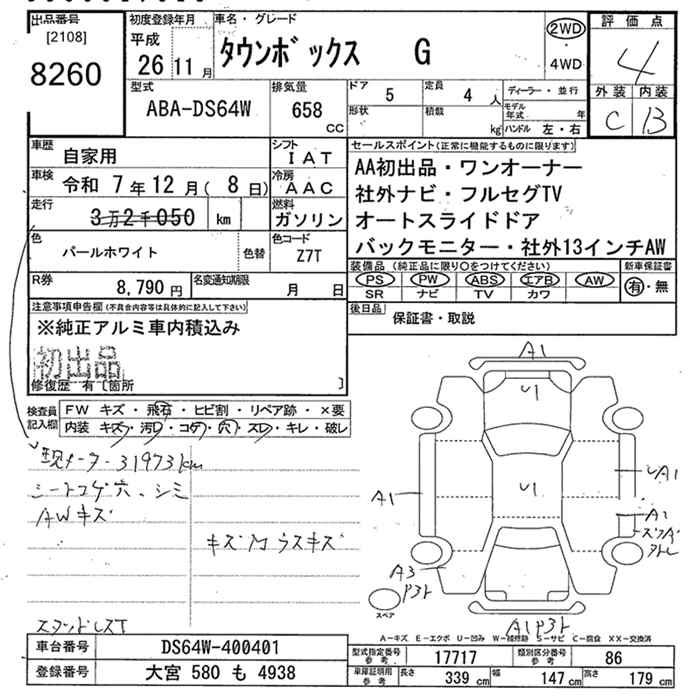 出品番号
[2108]
8260
初度登録年月
平成
26 11月
車名・グレード
タウンボックス G
2WD
・
4WD
評価点
4
外装 内装
C B
型式
ABA-DS64W
排気量
658
CC
ドア 5
定員 4人
形状
積数 kg
ディーラー・並行
モデル年式 年
ハンドル 左・右
車歴
自家用
シフト
IAT
車検
令和 7年12月(8日)
冷房
AAC
走行
3万2千050 km
燃料
ガソリン
色
パールホワイト
色替
色コード
Z7T
R券
8,790円
名変通知期限
月 日
セールスポイント(正常に機能するものに限ります)
AA初出品・ワンオーナー
社外ナビ・フルセグTV
オートスライドドア
バックモニター・社外13インチAW
装備品(純正品に限り○をつけてください)
PS PW ABS エアB AW
SR ナビ TV カワ
新車保証書
有・無
後日品
保証書・取説
注意事項申告欄(不具合内容等は具体的に記入して下さい)
※純正アルミ車内積込み
初出品
修復歴 有〔箇所 〕
検査員
記入欄
FW キズ・飛石・ヒビ割・リペア跡・×要
内装 キズ・汚レ・コゲ・穴・スレ・キレ・破レ
現メーター31973km
シートコゲ穴、シミ
AWキズ
キズ
ウスキズ
スタンドレスT
A1
U1
U1
A1
A1
A1
A3
A1
スペア
A-キズ E-エクボ U-凹み W-補修跡 S-サビ C-腐食 XX-交換済
車台番号
DS64W-400401
登録番号
大宮 580 も 4938
型式指定番号
参考
17717
類別区分番号
参考
86
車庫証明用
参考
長さ 339cm
幅 147cm
高さ 179cm